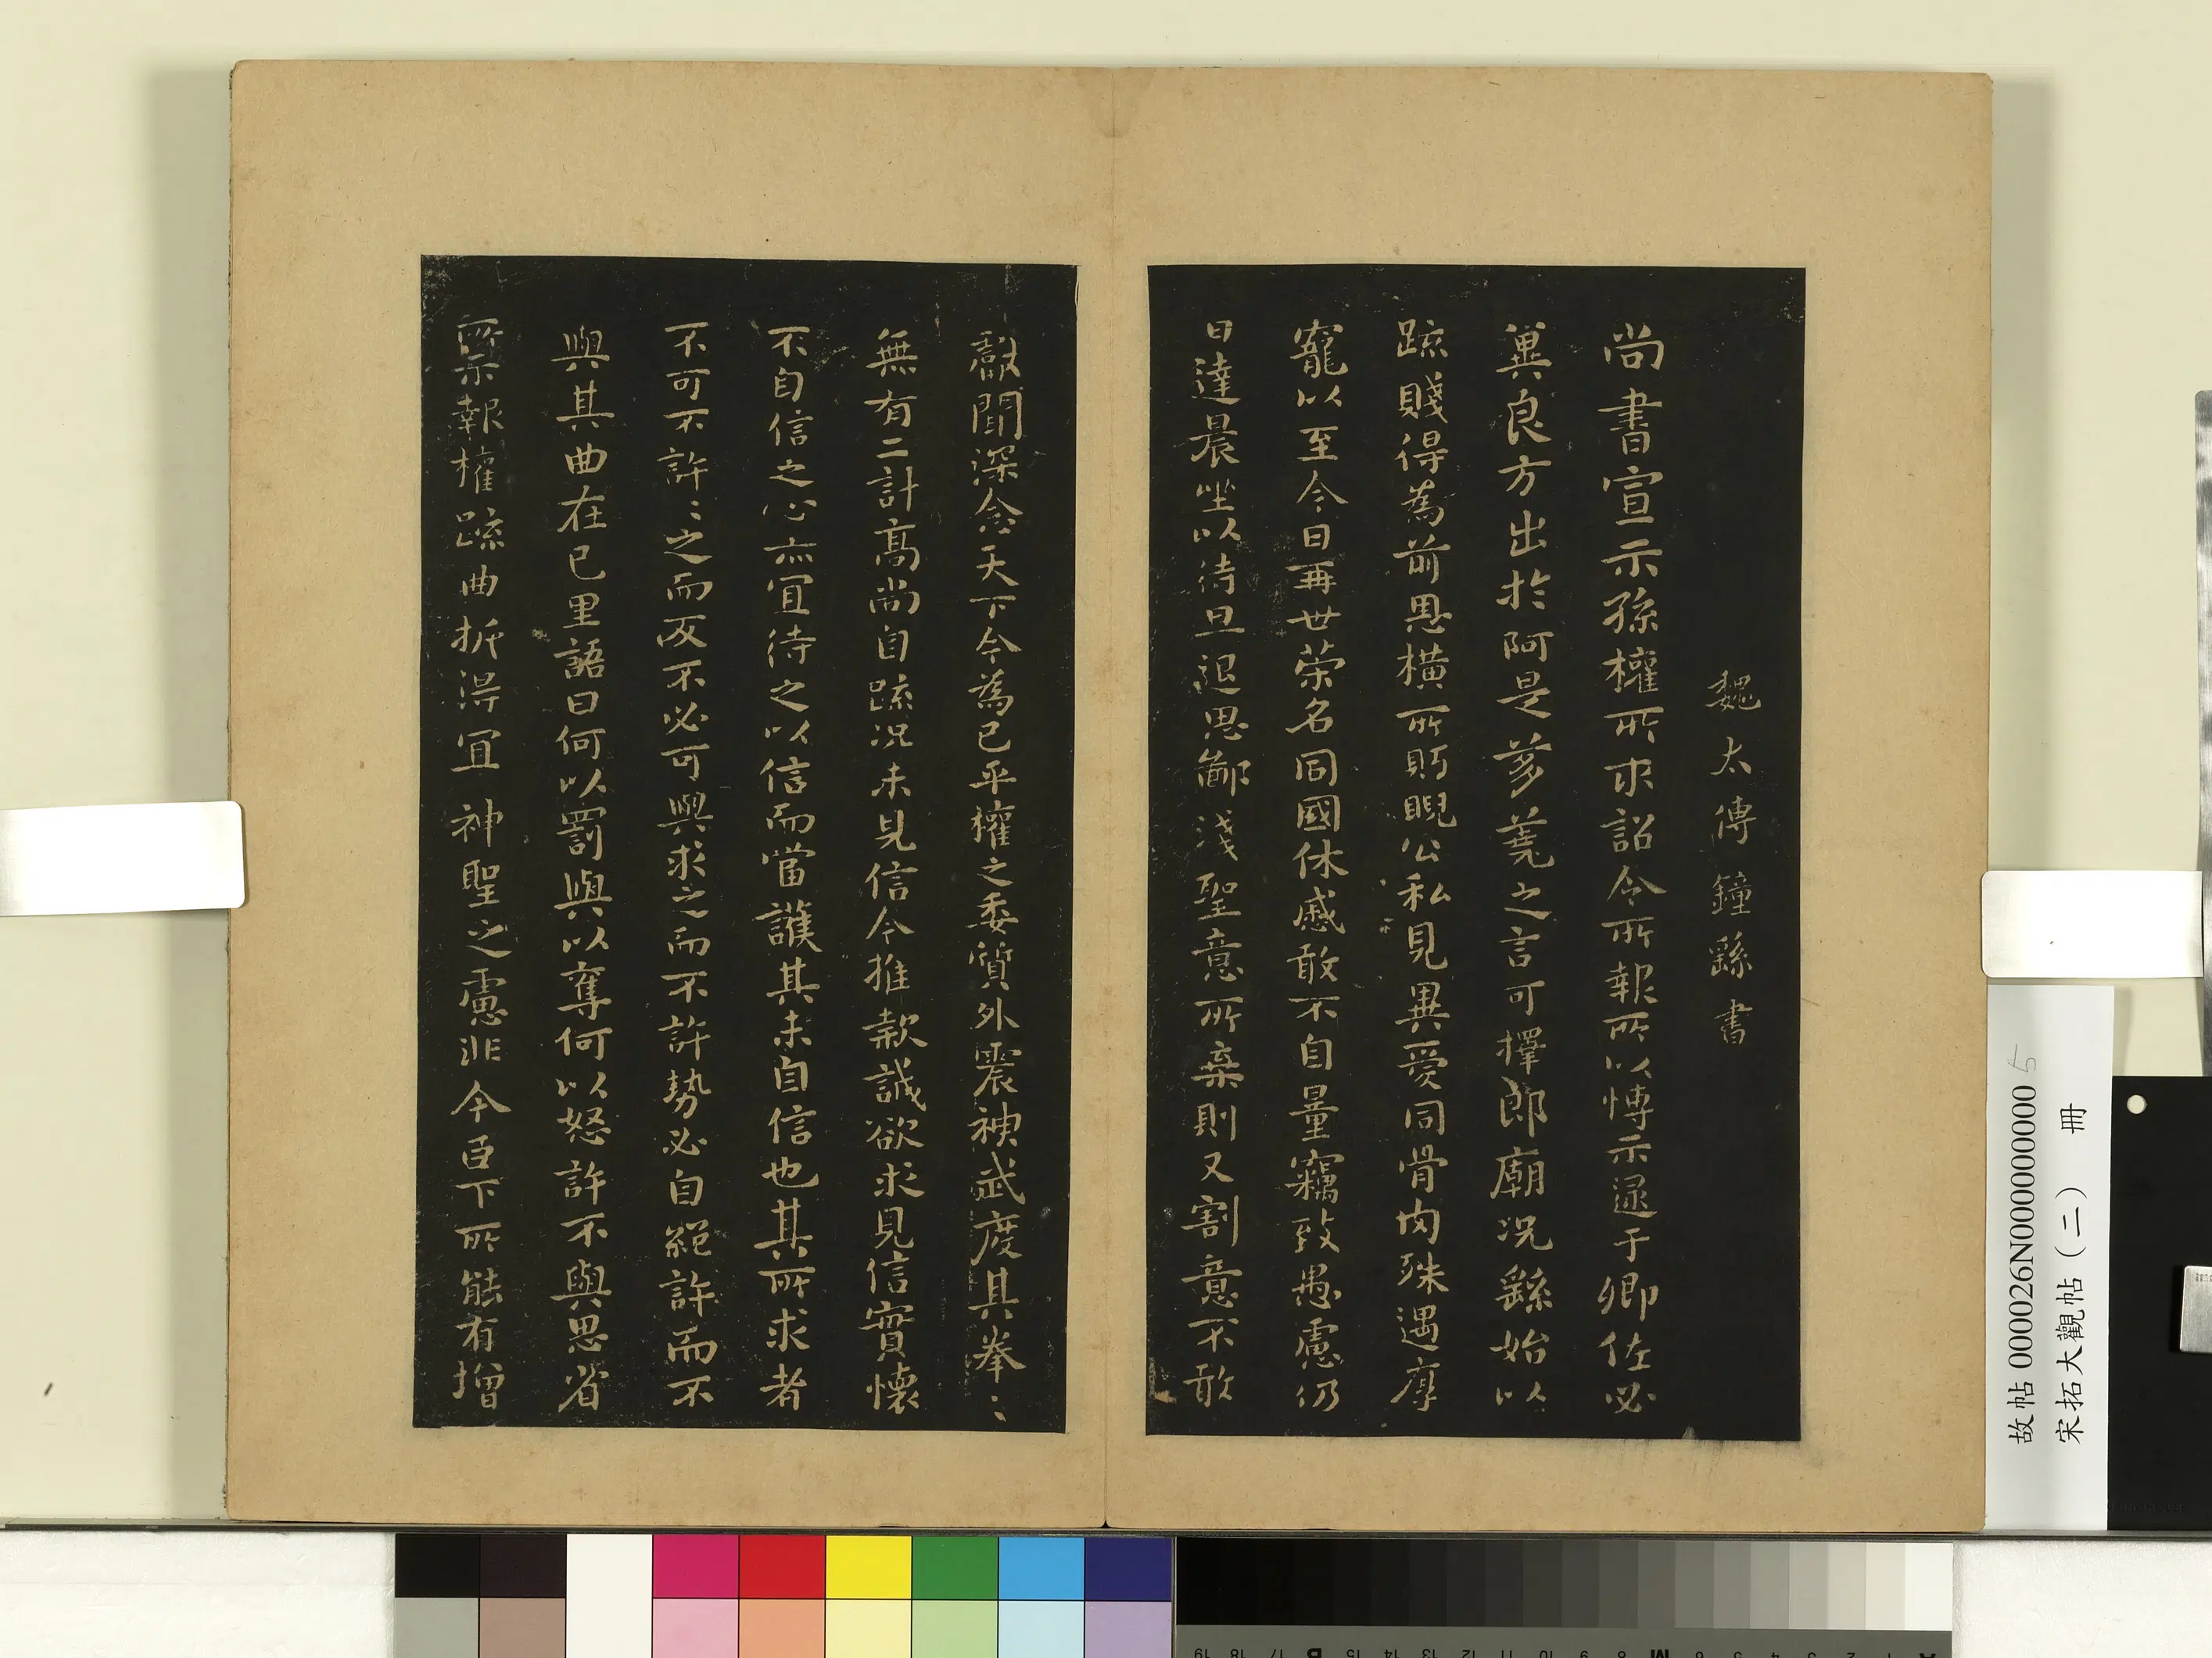 魏太傅鍾繇書
尚書宣示孫權所求詔令所報所以博示逮于卿佐必
冀良方出於阿是芻蕘之言可擇郎廟況繇始以
疏賤得為前恩橫所眄睨公私見異愛同骨肉殊遇厚
寵以至今日再世榮名同國休慼敢不自量竊致愚慮仍
日達晨坐以待旦退思鄙淺聖意所棄則又割意不敢
獻聞深念天下今為已平權之委質外震神武度其拳〻
無有二計高尚自疏況未見信今推款誠欲求見信實懷
不自信之心亦宜待之以信而當護其未自信也其所求者
不可不許〻之而反不必可與求之而不許勢必自絕許而不
與其曲在已里語曰何以罰與以奪何以怒許不與思省
所示報權疏曲折得宜神聖之慮非今臣下所能有增
故帖 000026N000000000 5
宋拓大觀帖（二） 冊
A 1 2 3 4 5 6 M 8 9 10 11 12 13 14 15 B 17 18 19